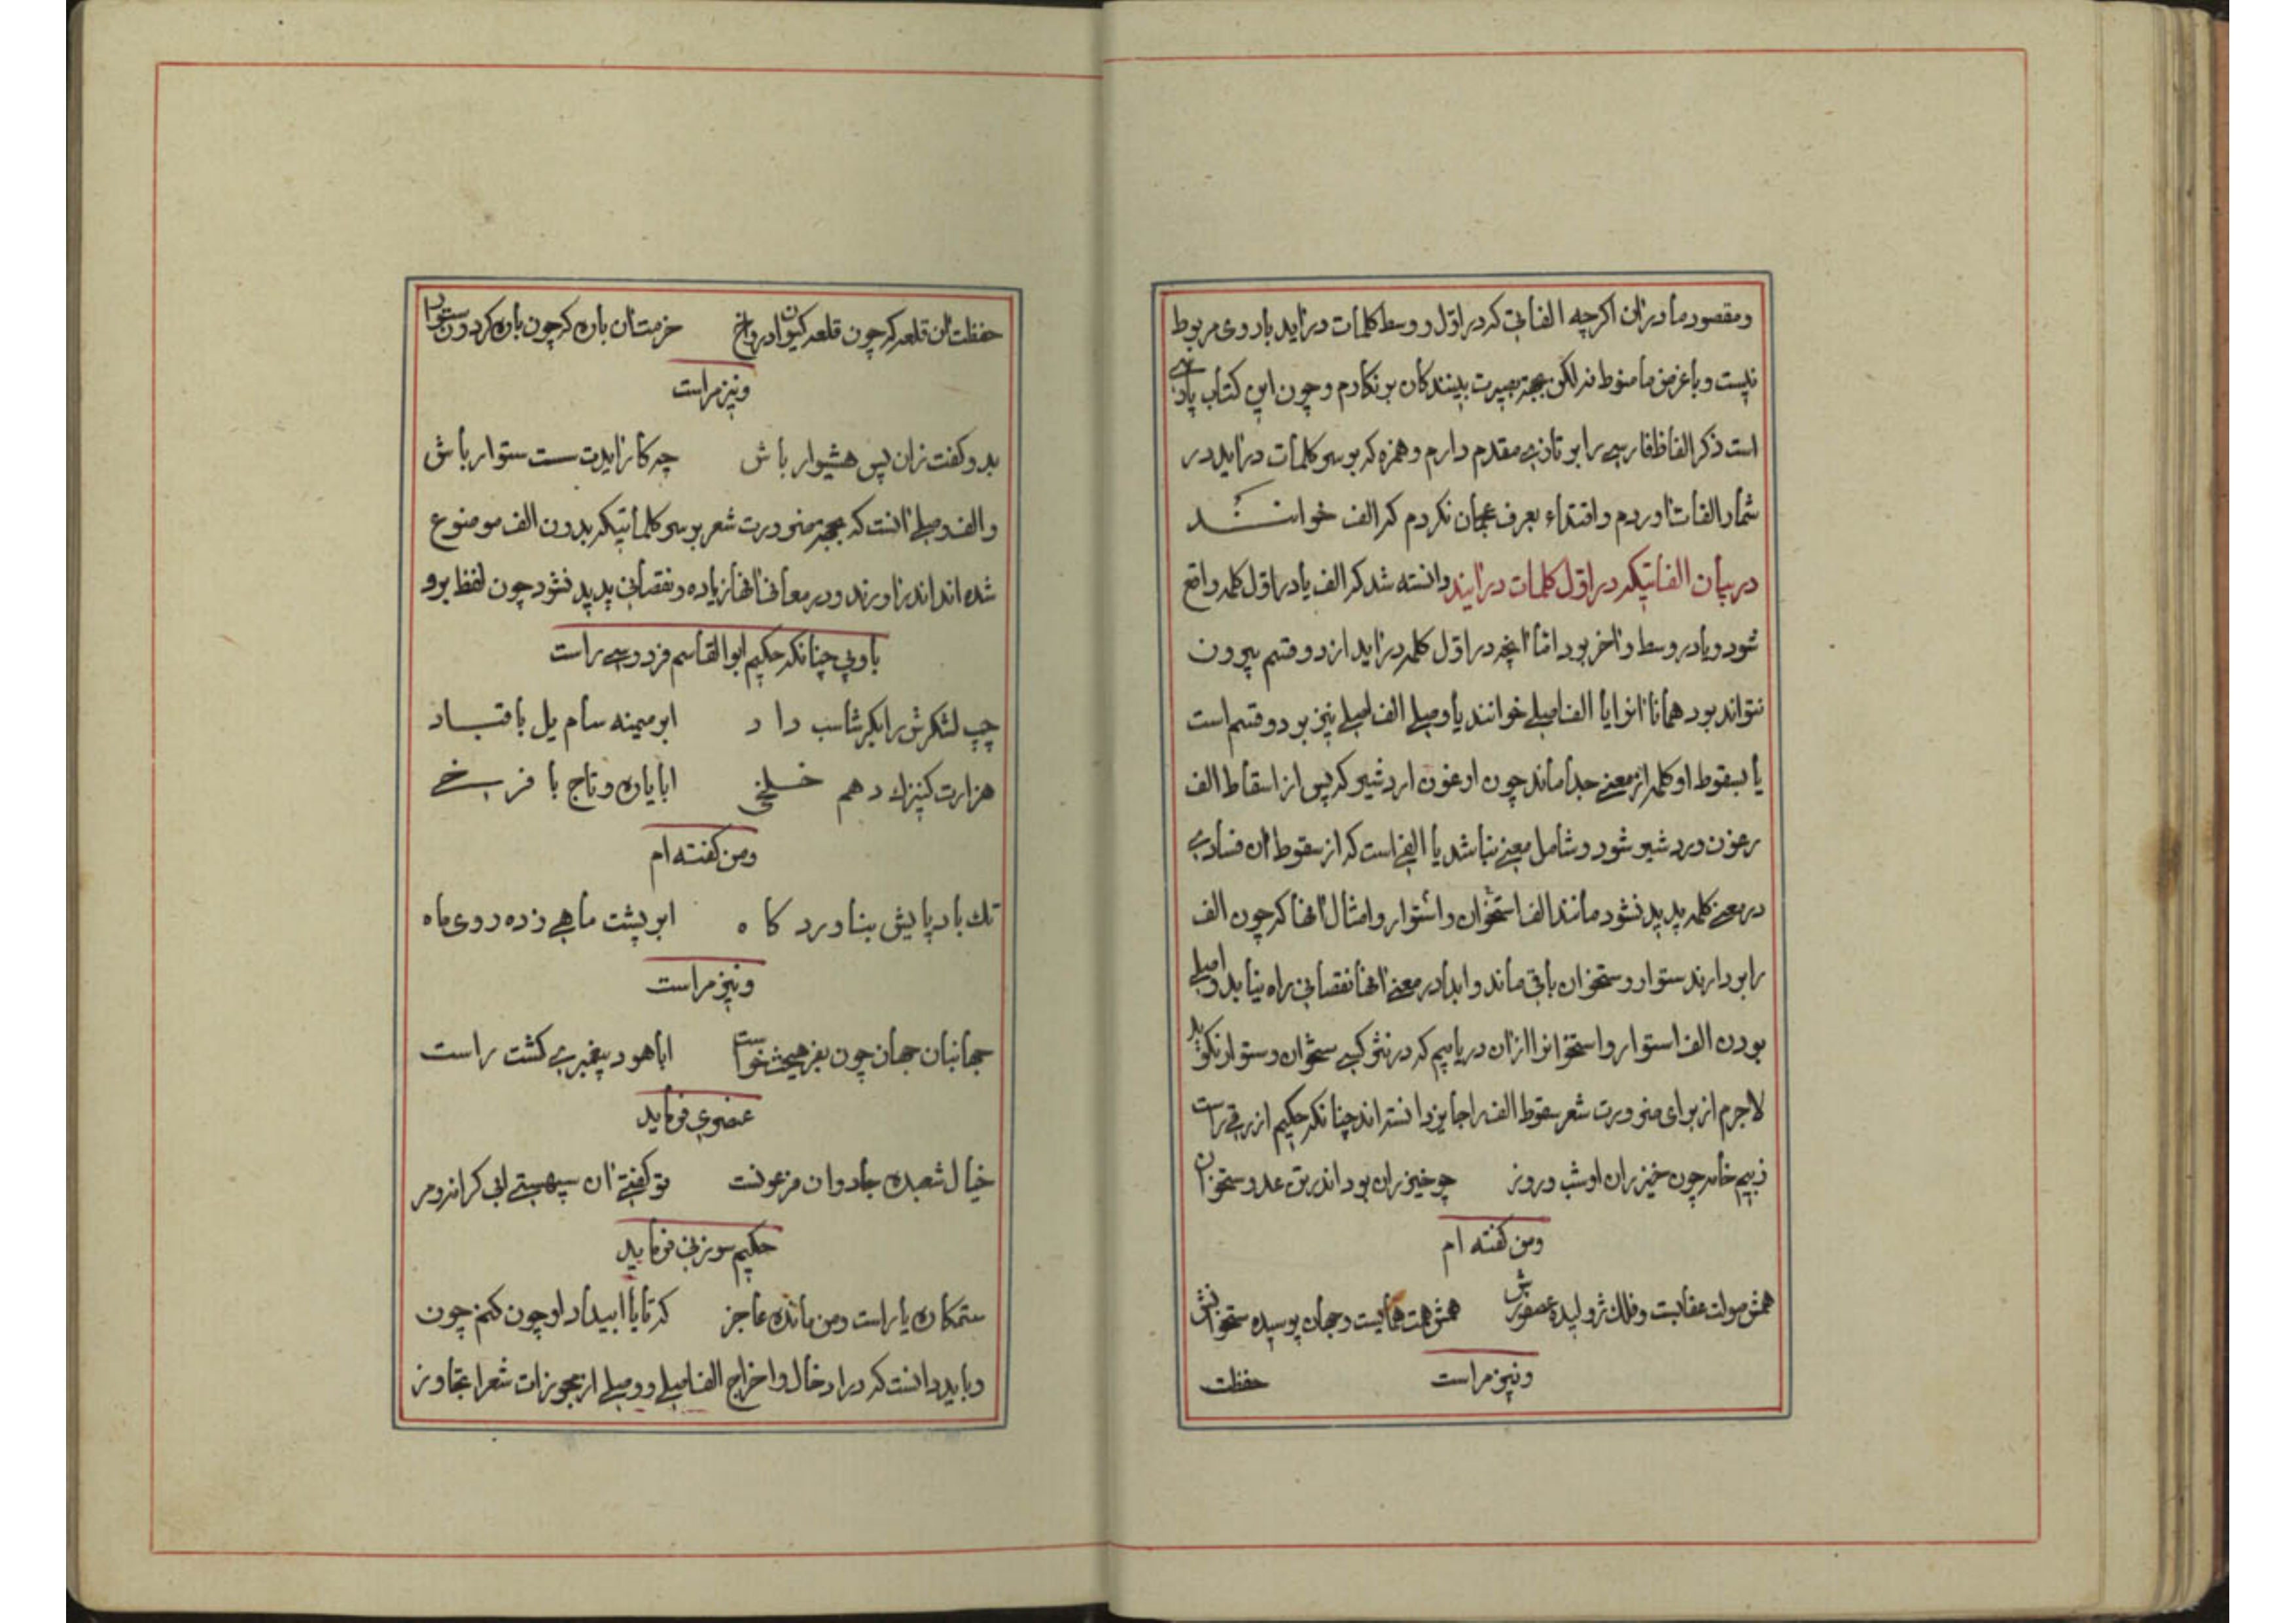 ومقصود ما دران اکرچه الفاتی که در اوّل و وسط کلمات دراید با روی مربوط
نیست و با غرض ما منوط نه لکن بجهة بصیرت بینندکان بر نکارم و چون این کتاب پارسی
است ذکر الفاظ فارسی را بر تازی مقدم دارم و همزه که بر سر کلمات دراید در
شمار الفات اوردم و اقتداء بعرف عجمان نکردم که الف خوانند
در بیان الفاتیکه در اوّل کلمات درایند دانسته شد که الف یا در اوّل کلمه واقع
شود و یا در وسط و اخر بود امّا انچه در اوّل کلمه دراید از دو قسم بیرون
نتواند بود همانا انرا یا الف اصلی خوانند یا وصلی الف اصلی نیز بر دو قسم است
یا بسقوط او کلمه از معنی جدا ماند چون ارغون اردشیر که پس از اسقاط الف
رغون و ردشیر شود و شامل معنی نباشد یا الفی است که از سقوط ان فسادی
در معنی کلمه پدید نشود مانند الف استخوان و استوار و امثال انها که چون الف
را بردارند ستوار و ستخوان باقی ماند و ابدا در معنی انها نقصانی راه نیابد و اصلی
بودن الف استوار و استخوانرا ازان دریابیم که در نثر کسی ستخوان و ستوار نکوید
لاجرم از برای ضرورت شعر سقوط الف را جایز دانسته اند چنانکه حکیم ازرقی راست
ز بیم خامه چون خیزران او شب و روز چو خیزران بود اندر تن عدو ستخوان
ومن کفته ام
همش صولت عقابست و فلک ژولیده عصفورش همش همت همایست و جهان پوسیده ستخوانش
ونیز مراست
حفظت
حفظت ان قلعه که چون قلعه کیوان ادرواخ حزمت ان باره که چون باره کردون ستوار
ونیز مراست
بدو کفت زان پس هشیوار باش چه کار ایدت سست ستوار باش
والف وصلی انست که بجهة ضرورت شعر بر سر کلماتیکه بدون الف موضوع
شده اند اندر اورند و در معانی انها زیاده و نقصانی پدید نشود چون لفظ بر و
با و بی چنانکه حکیم ابو القاسم فردوسی راست
چپ لشکرش را بکرشاسب داد ابر میمنه سام یل با قباد
هزارت کنیزک دهم خلخی ابا یاره و تاج با فرخی
ومن کفته ام
تک باد پایش بناورد کاه ابر پشت ماهی زده روی ماه
ونیز مراست
جهانبان جهان چون بفرهیخت خواست ابا هود پیغمبری کشت راست
عنصری فرماید
خیال شعبده جادوان فرعونست تو کفتی ان سپهستی ابی کرانه و مر
حکیم سوزنی فرماید
ستمکاره یار است و من مانده عاجز که تا یا ابیداد او چون کنم چون
وباید دانست که در ادخال و اخراج الف اصلی و وصلی از مجوزات شعرا تجاوز